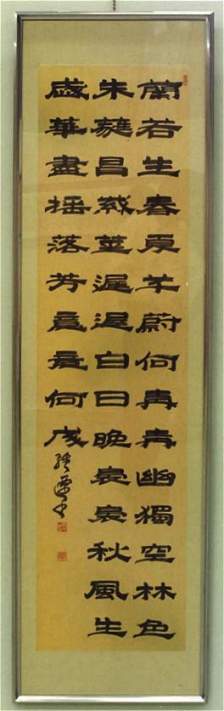 蘭若生春夏芊蔚何青青幽獨空林色
朱蕤冒紫莖遲遲白日晚裊裊秋風生
歲華盡搖落芳意竟何成